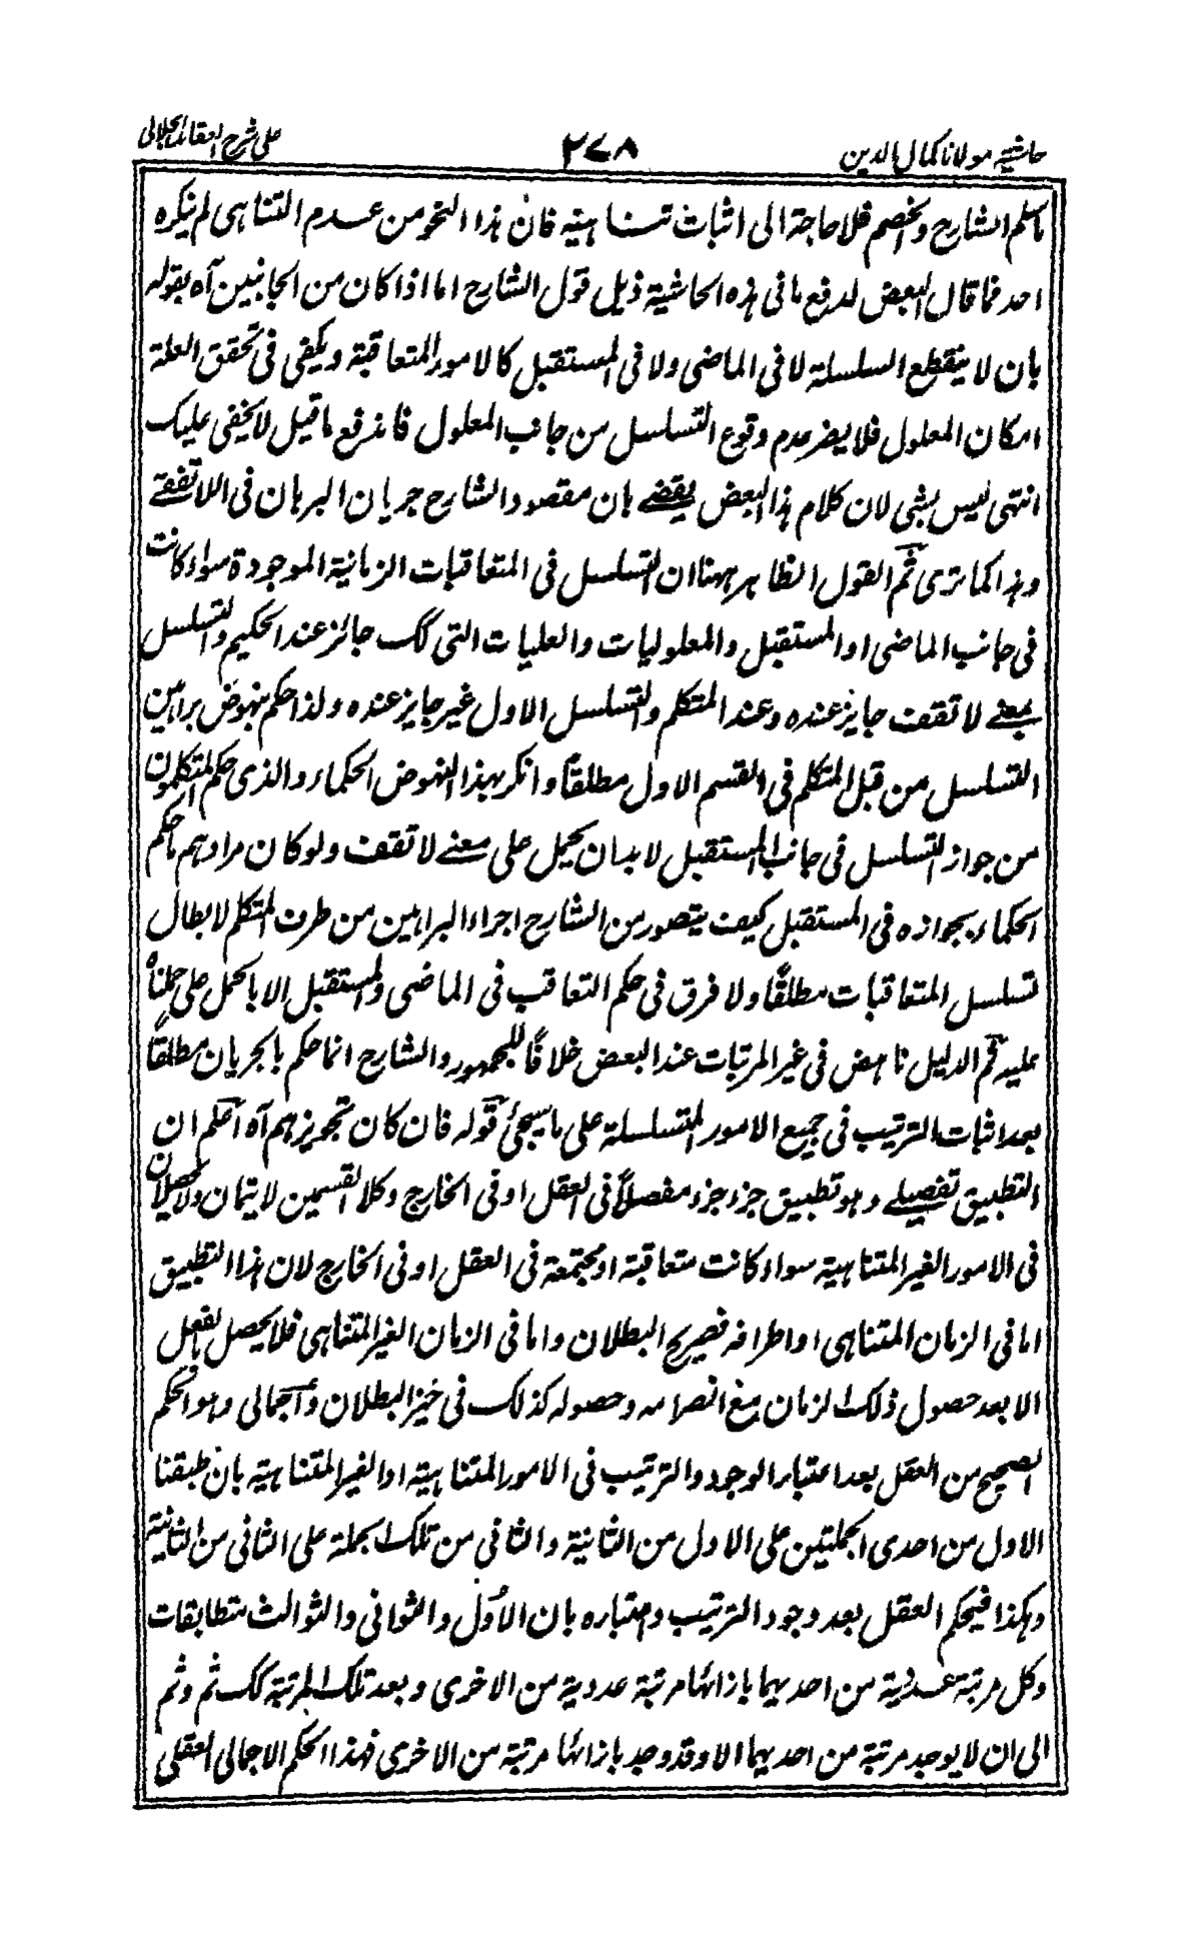 حاشیة مولانا کمال الدین
٢٧٨
علی شرح العقائد الجلالی
ما سلم الشارح والخصم فلا حاجة الى اثبات تناهیة فان هذا النحو من عدم التناهی لم ینکره
احد فما قال البعض لدفع ما فی هذه الحاشیة ذیل قول الشارح اما اذا کان من الجانبین آه بقوله
بان لا ینقطع السلسلة لا فی الماضی ولا فی المستقبل کالامور المتعاقبة ویکفی فی تحقق العلة
امکان المعلول فلا یضر عدم وقوع التسلسل من جانب المعلول فاندفع ما قیل لا یخفی علیک
انتهی لیس بشئ لان کلام هذا البعض یقضے بان مقصود الشارح جریان البرهان فی اللاتقفے
وهذا کما تری ثم القول الظاهر ههنا ان التسلسل فی المتعاقبات الزمانیة الموجودة سواء کانت
فی جانب الماضی او المستقبل والمعلولیات والعلیات التی کک جائز عند الحکیم والتسلسل
بمعنے لا تقف جایز عنده وعند المتکلم والتسلسل الاول غیر جایز عنده ولذا حکم بنهوض براهین
التسلسل من قبل المتکلم فی القسم الاول مطلقاً وانکر بهذا النهوض الحکماء والذی حکم المتکلمون
من جواز التسلسل فی جانب المستقبل لا بد ان یحمل علی معنے لا تقف ولو کان مرادهم ما حکم
الحکماء بجوازه فی المستقبل کیف یتصور من الشارح اجراء البراهین من طرف المتکلم لابطال
تسلسل المتعاقبات مطلقاً ولا فرق فی حکم التعاقب فی الماضی والمستقبل الا بالحمل علی حملناه
علیه ثم الدلیل ناهض فی غیر المرتبات عند البعض خلافاً للجمهور والشارح انما حکم بالجریان مطلقاً
بعد اثبات الترتیب فی جمیع الامور المتسلسلة علی ما سیجئ قوله فان کان تجویزهم آه اعلم ان
التطبیق تفصیلے وهو تطبیق جزء جزء مفصلاً فی العقل او فی الخارج وکلا القسمین لا یتمان ولا یحصلان
فی الامور الغیر المتناهیة سواء کانت متعاقبة او مجتمعة فی العقل او فی الخارج لان هذا التطبیق
اما فی الزمان المتناهی او اطرافه فصریح البطلان واما فی الزمان الغیر المتناهی فلا یحصل بالفعل
الا بعد حصول ذلک الزمان مع انصرامه وحصوله کذلک فی حیز البطلان واجمالی وهو الحکم
الصحیح من العقل بعد اعتبار الوجود والترتیب فی الامور المتناهیة او الغیر المتناهیة بان طبقنا
الاول من احدی الجملتین علی الاول من الثانیة والثانی من تلک الجملة علی الثانی من الثانیة
وهکذا فیحکم العقل بعد وجود الترتیب واعتباره بان الاُوَل والثوانی والثوالث متطابقات
وکل مرتبة عددیة من احدیهما بازائها مرتبة عددیة من الاخری وبعد تلک المرتبة کک ثم وثم
الی ان لا یوجد مرتبة من احدیهما الا وقد وجد بازائها مرتبة من الاخری فهذا الحکم الاجمالی العقلی